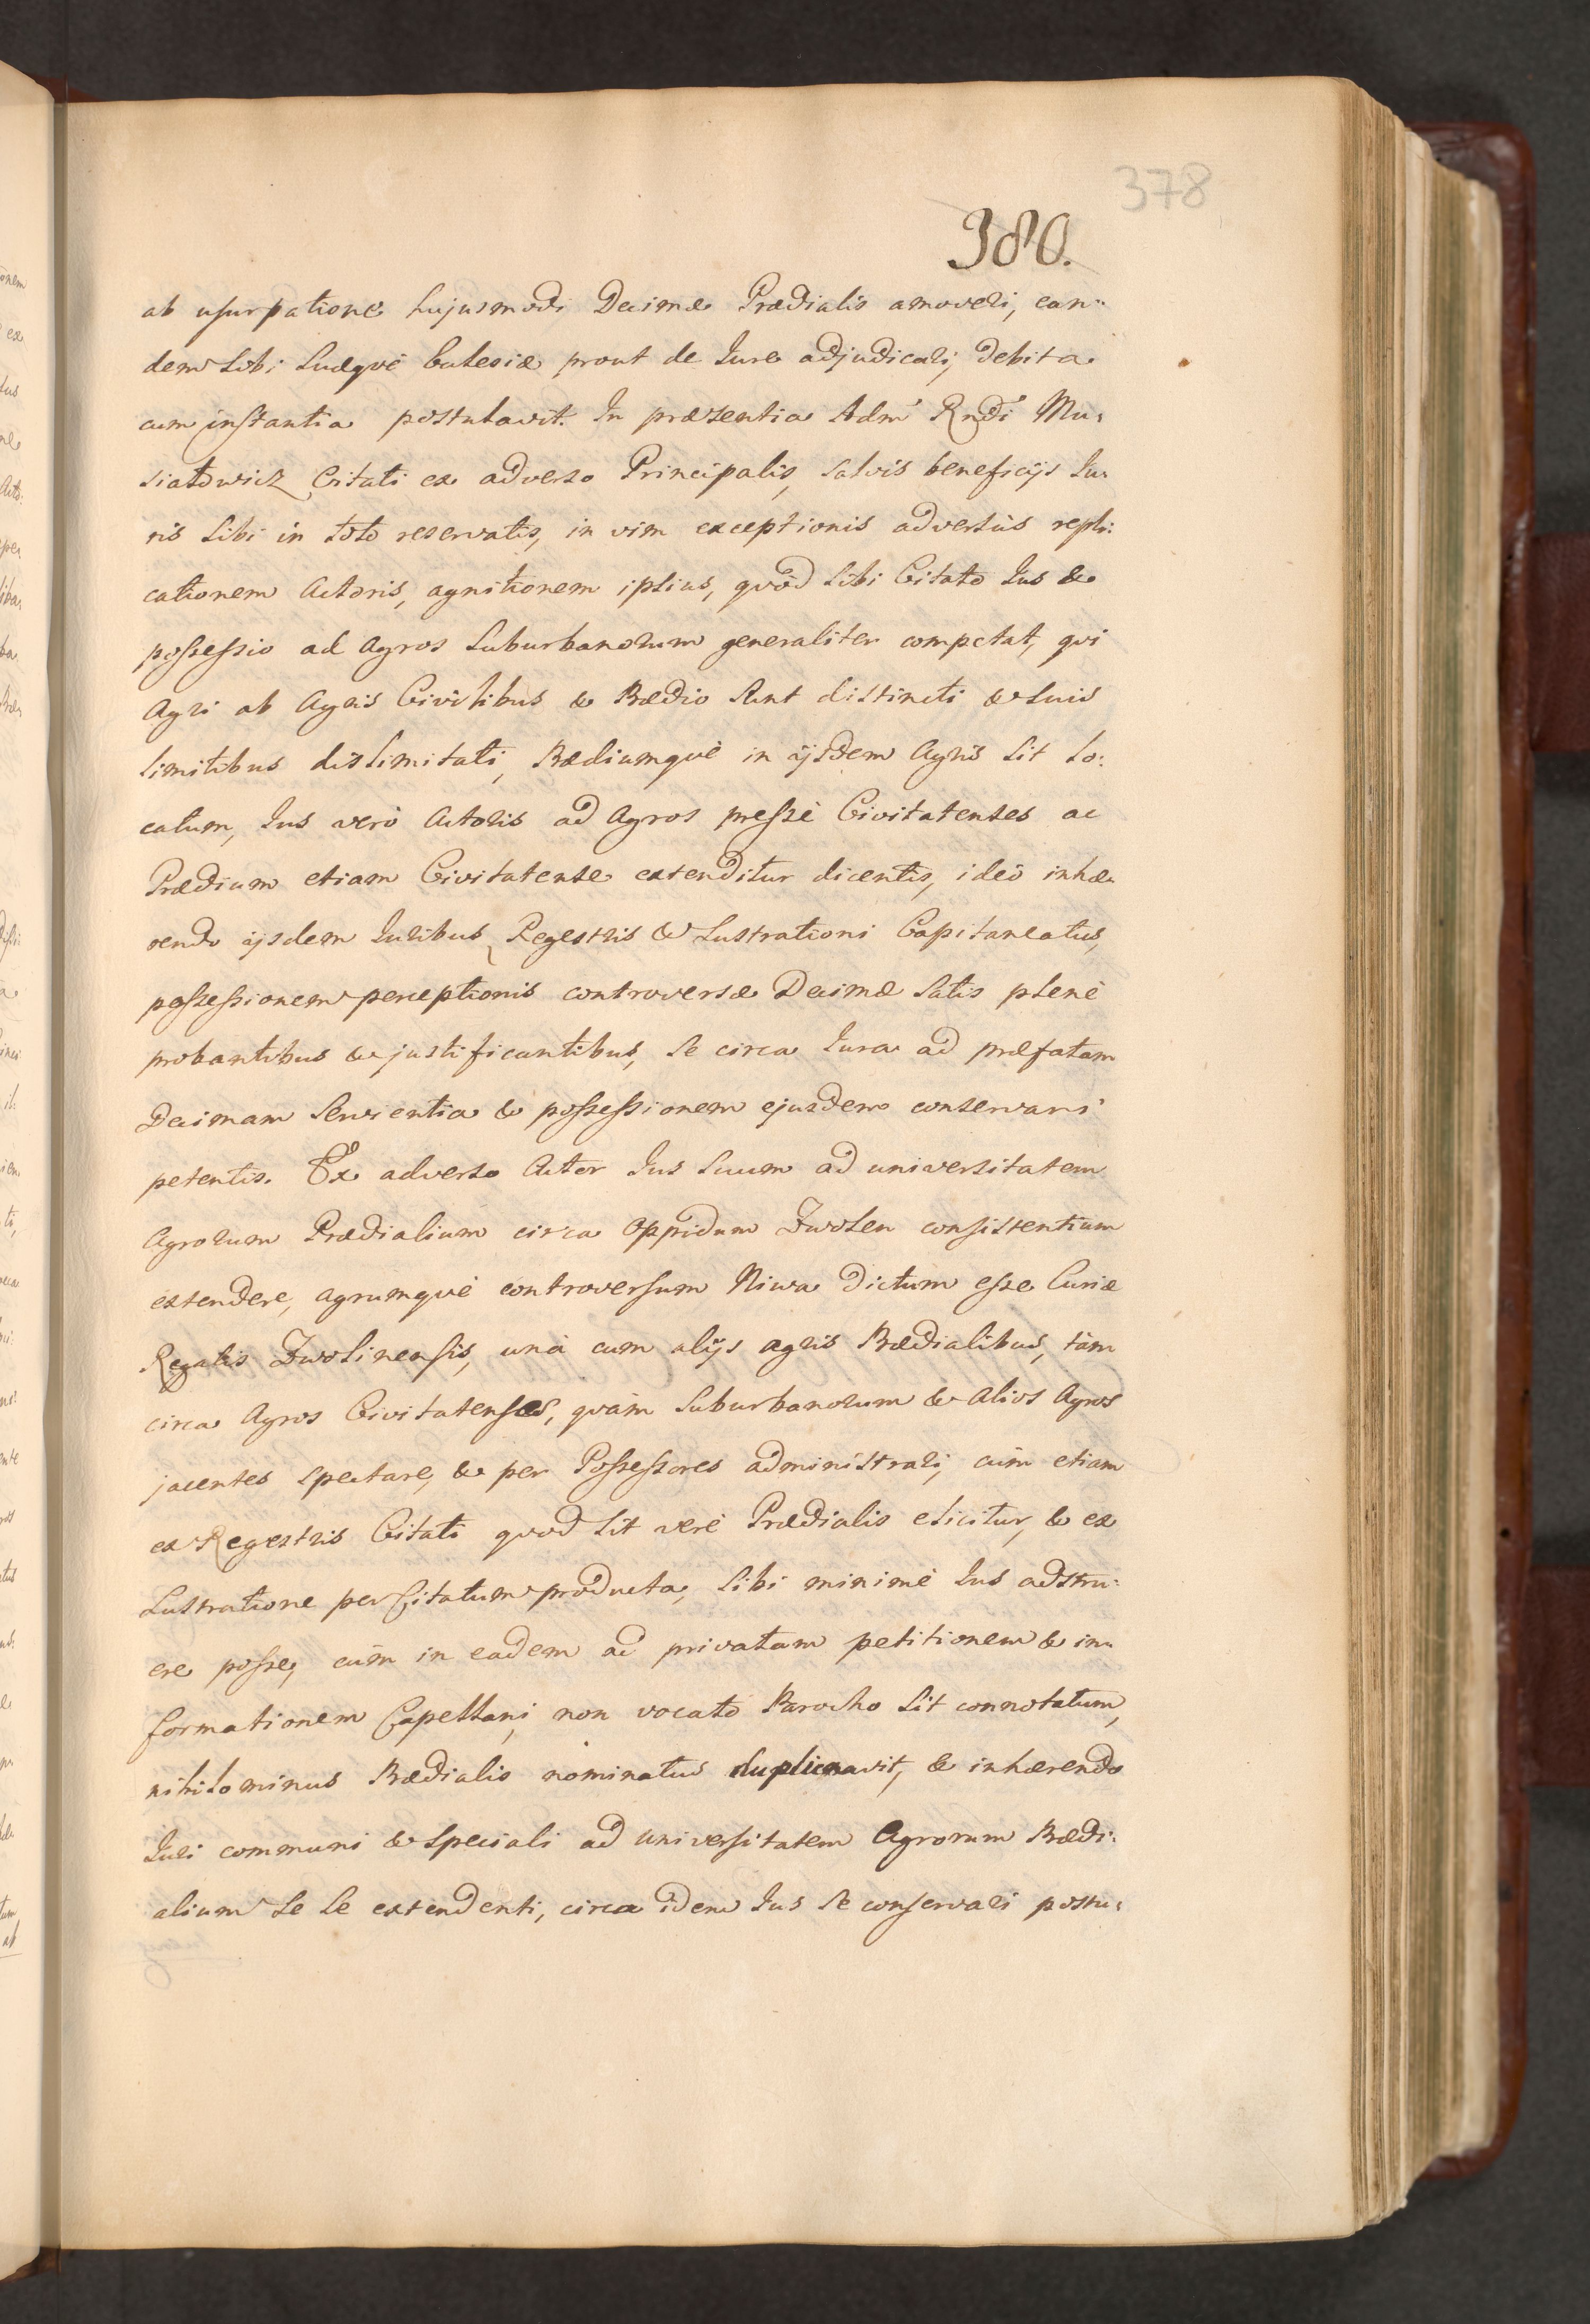 378
380.
ab usurpatione hujusmodi Decimæ Prædialis amoveri, ean:
dem Sibi Suæqvè Ecclesiæ prout de Jure adjudicari, debita
cum instantia postulavit. In præsentia Adm̃ Rndi Mu:
siatowicz Citati ex adverso Principalis, salvis beneficijs Iu:
ris Sibi in toto reservatis, in vim exceptionis adversùs repli:
cationem Actoris, agnitionem ipsius, qvòd Sibi Citato Ius &
possessio ad Agros Suburbanorum generaliter competat, qvi
Agri ab Agris Civilibus & Prædio Sunt distincti & Suis
limitibus dislimitati, Prædiumqvè in ijsdem Agris Sit lo:
catum, Ius verò Actoris ad Agros pressè Civitatenses ac
Prædium etiam Civitatense extenditur dicentis, ideò inhæ:
rendo ijsdem Iuribus, Regestris & Lustrationi Capitaneatus,
possessionem perceptionis controversæ Decimæ Satis plenè
probantibus & justificantibus, Se circa Iura ad præfatam
Decimam Servientia & possessionem ejusdem conservari
petentis. Ex adverso Actor Ius Suum ad universitatem
Agrorum Prædialium circa Oppidum Zwolen consistentium
extendere, agrumqvè controversum Niwa dictum esse Curiæ
Regalis Zwolinensis, unà cum alijs agris Prædialibus, tàm
circa Agros Civitatenses, qvàm Suburbanorum & alios Agros
jacentes spectare, & per Possessores administrari, cùm etiam
ex Regestris Citati qvod Sit verè Prædialis elicitur, & ex
Lustratione per Citatum producta, Sibi minimè Ius adstru:
ere posse, cùm in eadem ad privatam petitionem & in:
formationem Capellani, non vocato Parocho Sit connotatum,
nihilominus Prædialis nominatus duplicavit, & inhærendo
Iuri communi & Speciali ad universitatem Agrorum Prædi:
alium Se Se extendenti, circa idem Ius Se conservari postu: